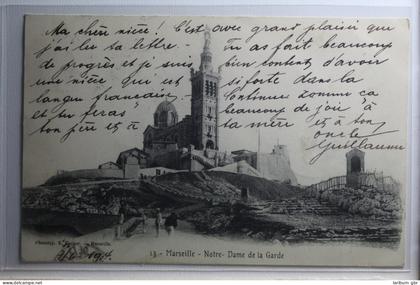 Ma chère nièce ! C'est avec grand plaisir que
j'ai lu ta lettre. Tu as fort beaucoup
de progrès et je suis bien content d'avoir
une nièce qui est si forte dans la
langue française. Continue comme ça
et tu feras beaucoup de joie à
ton père et à ta mère et à ton
oncle
Guillaume
13 - Marseille - Notre-Dame de la Garde